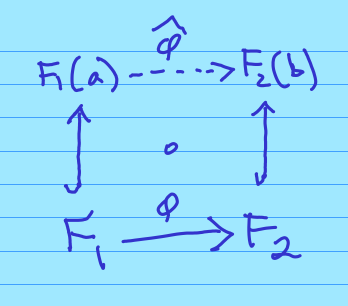 φ̂
F₁(a) ⇢ F₂(b)
∘
φ
F₁ → F₂